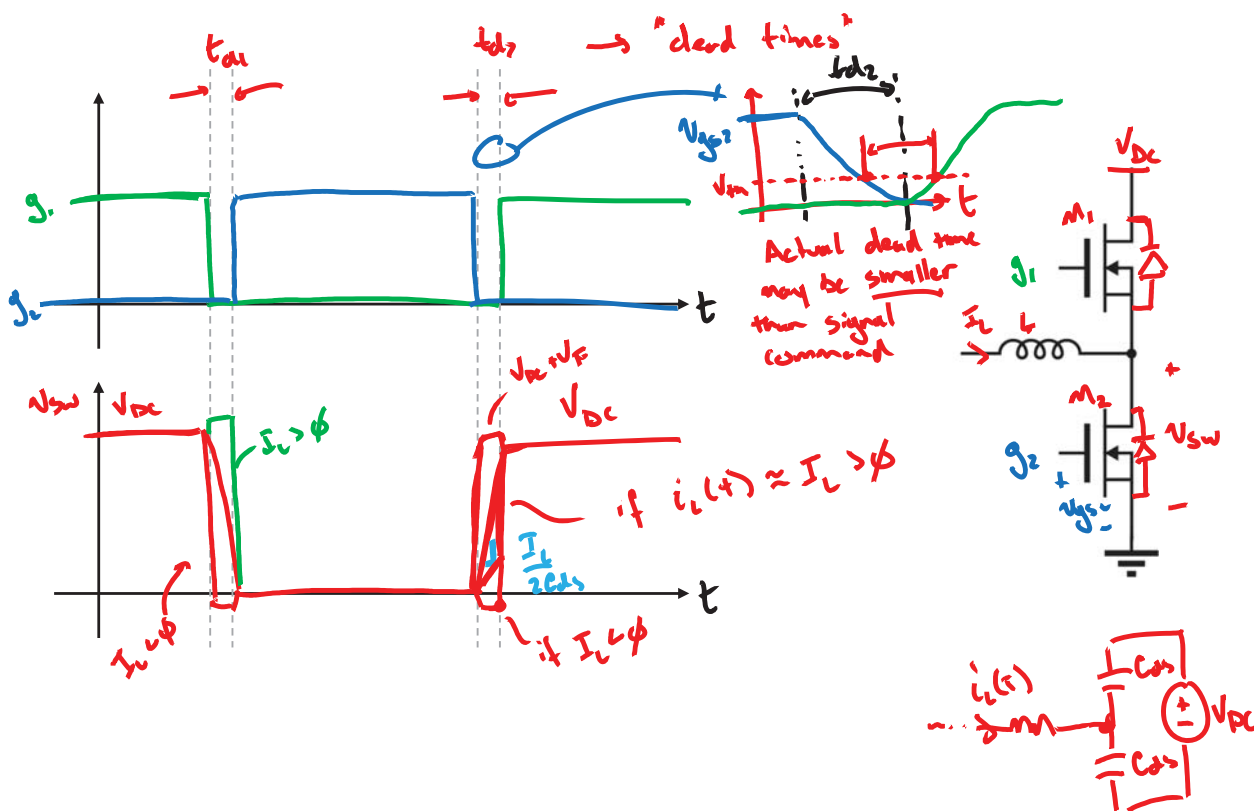 t_d1
t_d2 → "dead times"
t_d2
V_gs2
V_th
t
g_1
g_2
t
Actual dead time
may be smaller
than signal
command
V_DC
M_1
g_1
I_L L
+
M_2
g_2
V_sw
+
V_gs
-
-
V_sw V_DC
I_L > ϕ
V_DC + V_F
V_DC
if i_L(t) ≈ I_L > ϕ
I_L
2C_ds
t
I_L < ϕ
if I_L < ϕ
i_L(t)
C_ds
+
-
V_DC
C_ds